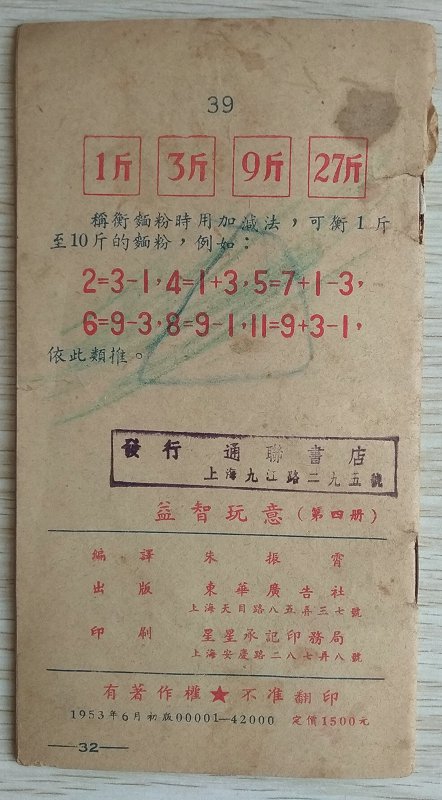 39
1斤 3斤 9斤 27斤
稱衡麵粉時用加減法，可衡1斤
至10斤的麵粉，例如：
2=3-1，4=1+3，5=7+1-3，
6=9-3，8=9-1，11=9+3-1，
依此類推。
發行 通聯書店
上海九江路二九五號
益智玩意（第四册）
編譯 朱振霄
出版 東華廣告社
上海天目路八五弄三七號
印刷 星星承記印務局
上海安慶路二八七弄八號
有著作權★不准翻印
1953年6月初版00001—42000 定價1500元
—32—